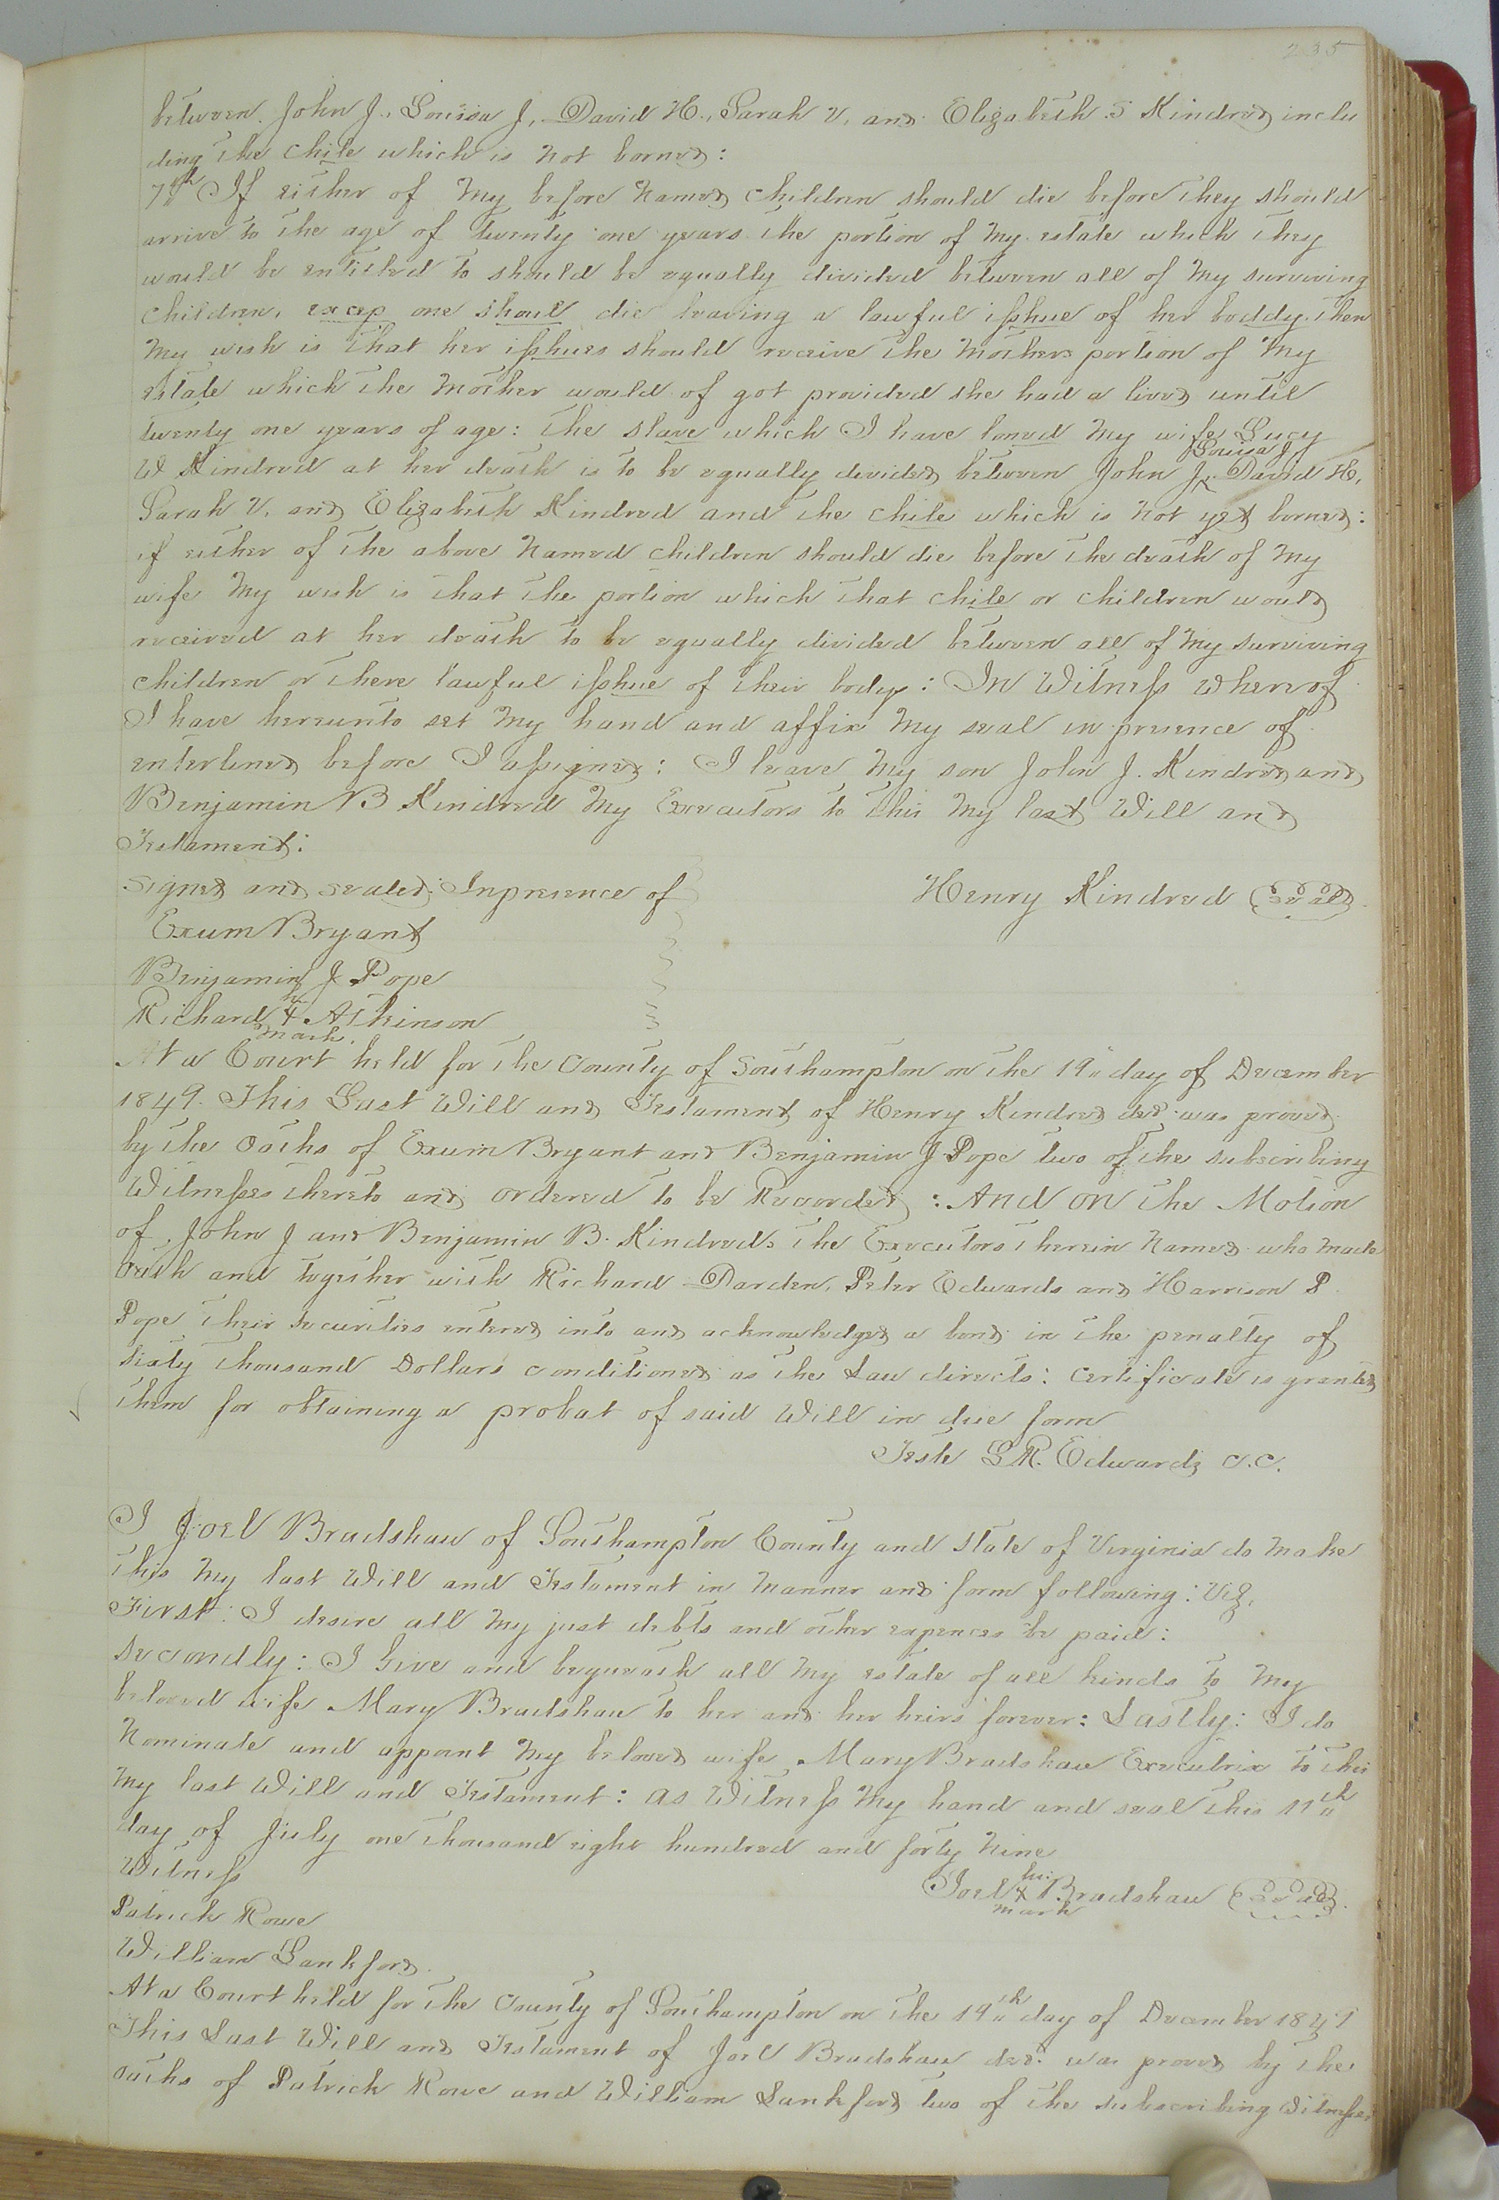 235
between John J., Louisa J, David H., Sarah V, and Elizabeth S Kindred inclu
ding the chile which is not borned:
7th If either of my before named children should die before they should
arrive to the age of twenty one years the portion of my estate which they
would be entitled to should be equally divided between all of my surviving
children, excep one shoul die leaving a lawful isshue of her boddy then
my wish is that her isshues should receive the mothers portion of my
estate which the mother would of got provided she had a lived until
twenty one years of age: The slave which I have loned my wife Lucy
W Kindred at her death is to be equally devided between John J, Louisa J, David H,
Sarah V. and Elizabeth Kindred and the chile which is not yet borned:
if either of the above named children should die before the death of my
wife my wish is that the portion which that chile or children would
received at her death to be equally divided between all of my surviving
children or there lawful isshue of their body: In Witness whereof
I have hereunto set my hand and affix my seal in presence of
enterlined before I assigned: I leave my son John J. Kindred and
Benjamin B Kindred my Executors to this my last Will and
Testament:
Signed and sealed Inpresence of
Henry Kindred Seal
Exum Bryant
Benjamin J Pope
his
Richard X Atkinson
mark.
At a Court held for the County of Southampton on the 19 day of December
1849. This Last Will and Testament of Henry Kindred decd. was proved
by the oaths of Exum Bryant and Benjamin J Pope two of the subscribing
Witnesses thereto and ordered to be Recorded: And on the Motion
of John J and Benjamin B. Kindreds the Executors therein named who made
Oath and together with Richard Darden, Peter Edwards and Harrison P.
Pope their securities entered into and acknowledged a bond in the penalty of
Sixty thousand Dollars conditioned as the Law directs: certificate is granted
them for obtaining a probat of said Will in due form
Teste L R. Edwards C.C.
I Joel Bradshaw of Southampton County and State of Virginia do make
this my last Will and Testament in manner and form following: Viz,
First: I desire all my just debts and other expences be paid:
Secondly: I Give and bequeath all my estate of all kinds to my
beloved wife Mary Bradshaw to her and her heirs forever: Lastly: I do
nominate and appoint my beloved wife Mary Bradshaw Executrix to this
my last Will and Testament: as Witness my hand and seal this 11th
day of July one thousand eight hundred and forty nine
Witness
his
Joel X Bradshaw Seal
mark
Patrick Rowe
William Lankford.
At a Court held for the County of Southampton on the 19th day of December 1849
This Last Will and Testament of Joel Bradshaw decd. was proved by the
oaths of Patrick Rowe and William Lankford two of the subscribing Witnesses